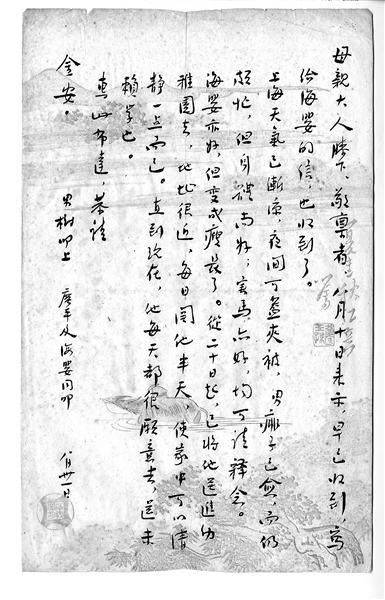 母親大人膝下、敬稟者，八月十日来示，早已收到，寫
给海嬰的信，也收到了。
上海天氣已漸凉，夜間可盖夾被，男痱子已愈，而仍
頗忙，但身體尚好；害馬亦好，均可請釋念。
海嬰亦好，但变成瘦長了。從二十日起，已将他送進幼
稚園去，地址很近，每日關他半天，使家中可以清
静一点而已。直到現在，他每天都很願意去，還未
賴學也。
專此布達，恭請
金安。
男樹叩上　廣平及海嬰同叩　八月卅一日